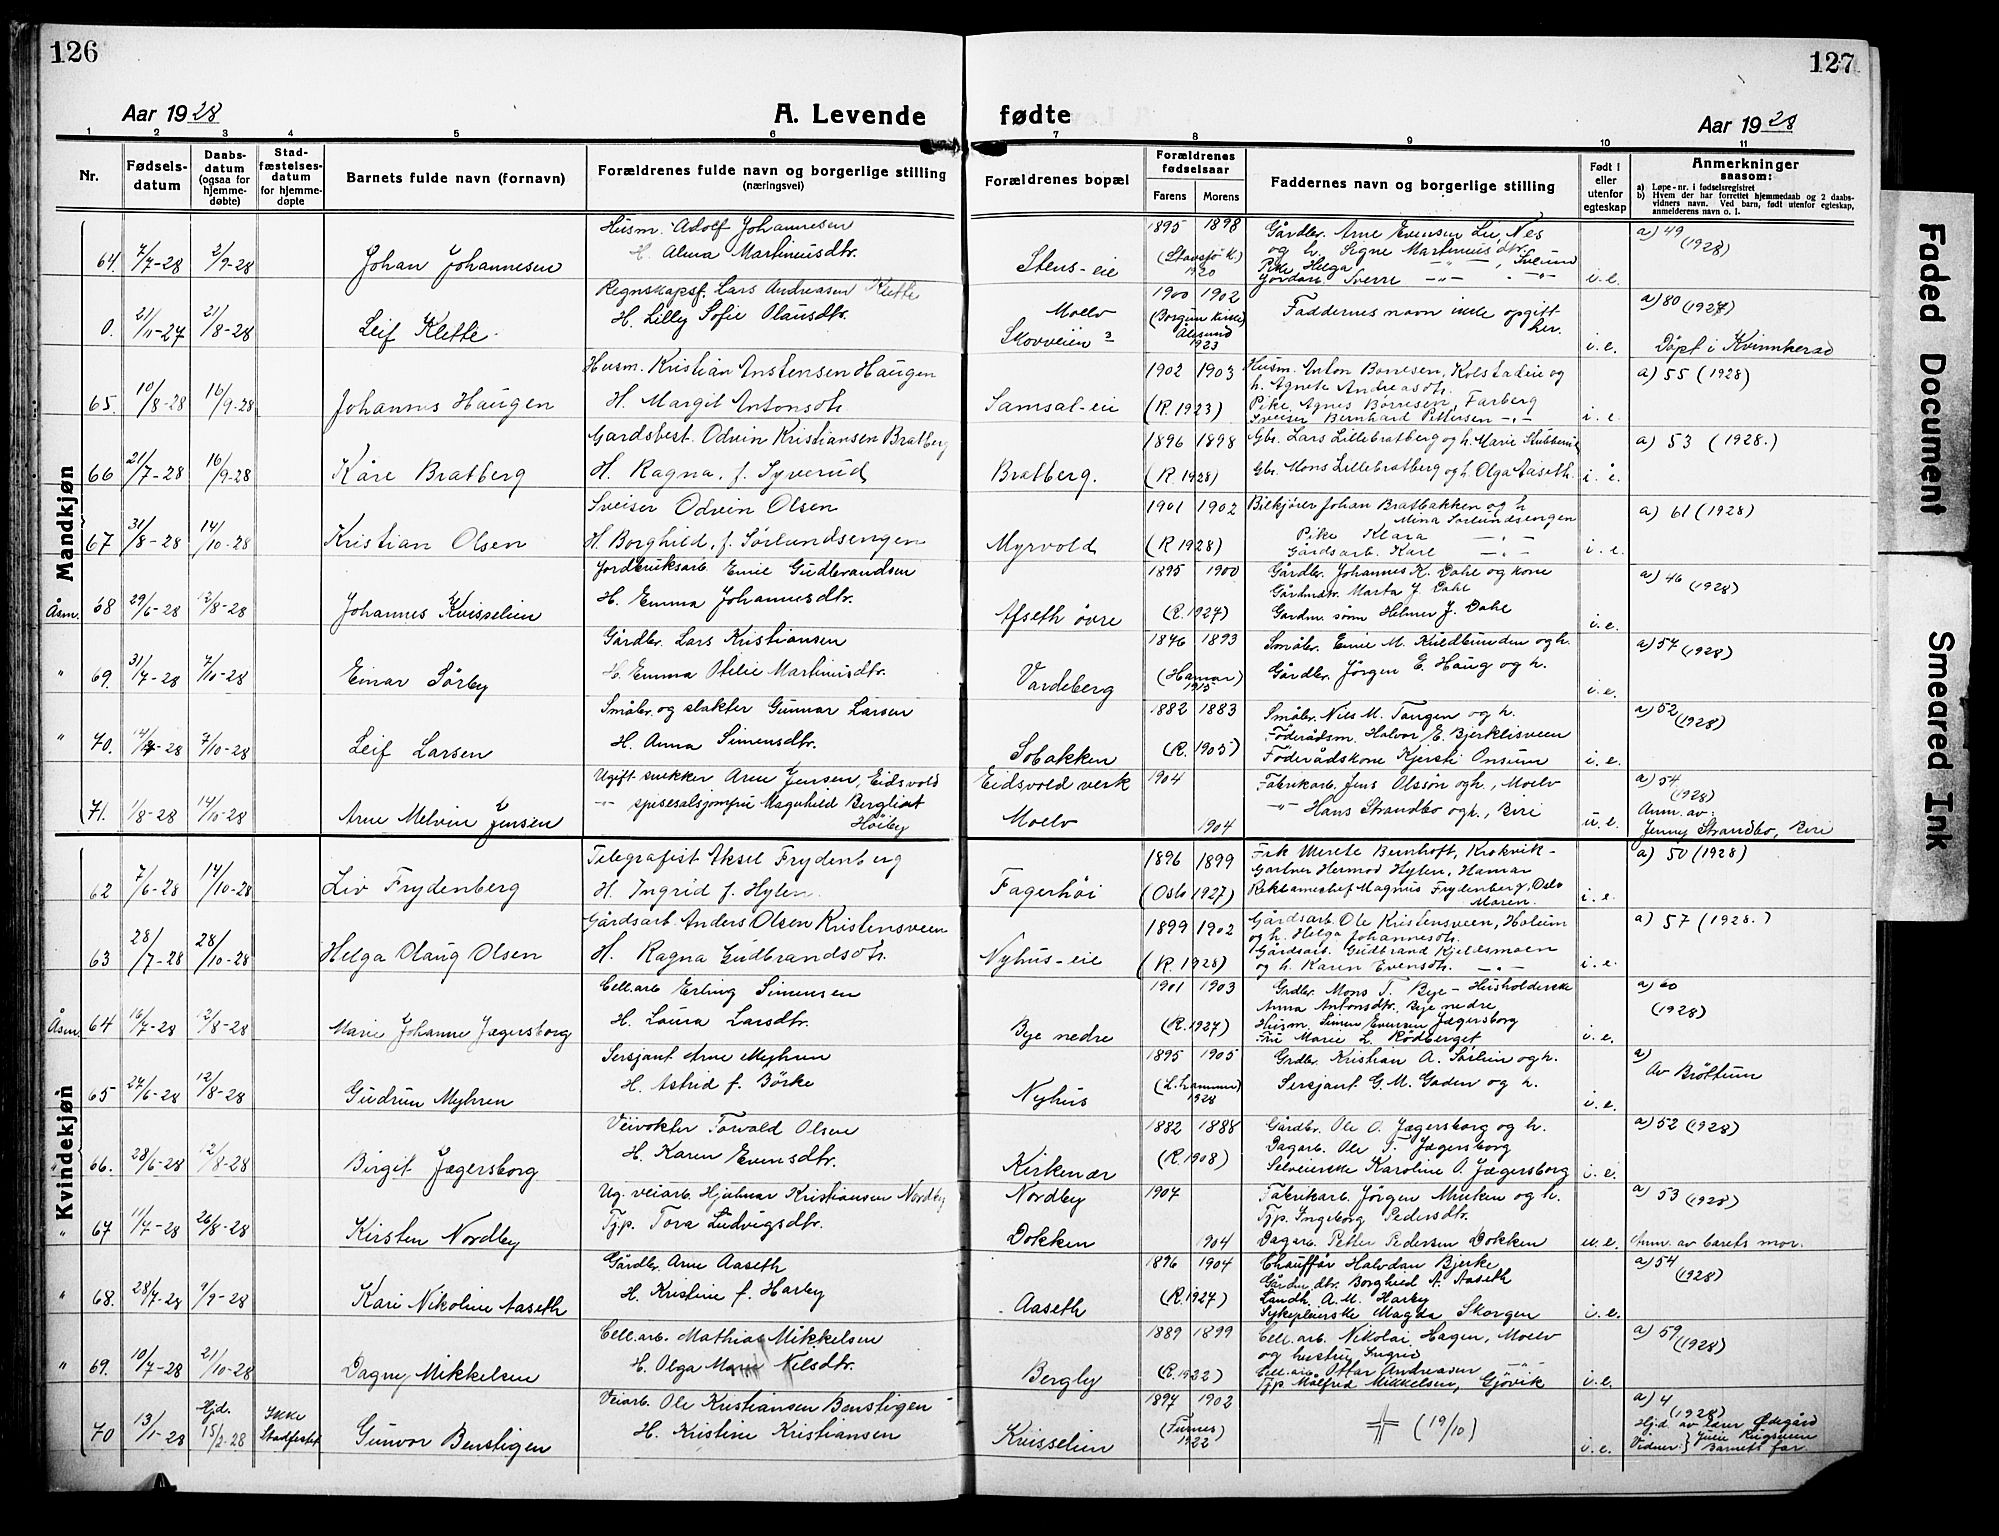 126
127
Aar 1928
A. Levende fødte
Aar 1928
1 2 3 4 5 6 7 8 9 10 11
Nr.
Fødsels-datum
Daabs-datum (ogsaa for hjemme-døbte)
Stad-fæstelses-datum for hjemme-døpte
Barnets fulde navn (fornavn)
Forældrenes fulde navn og borgerlige stilling (næringsvei)
Forældrenes bopæl
Forældrenes fødselsaar
Farens Morens
Faddernes navn og borgerlige stilling
Født i eller utenfor egteskap
Anmerkninger saasom:
a) Løpe-nr. i fødselsregistret
b) Hvem der har forrettet hjemmedaab og 2 daabs-vidners navn. Ved barn, født utenfor egteskap, anmelderens navn o. l.
Mandkjøn
Husm. Adolf Johannesen 1895 1898 Gårdbr. Arne Evensen Lie, Nes a) 49 (1928)
64. 7/7-28 2/9-28 Johan Johannesen H. Alma Martinusdtr. Stens-eie (Stavsjø k.) 1920 og h. Signe Martinusdtr.
Pike Helga
Sverre i.e.
Regnskapsf. Lars Andreasen Klette 1900 1902 Faddernes navn ikke opgitt her. a) 80 (1927)
0. 21/11-27 21/8-28 Leif Klette. H. Lilly Sofie Olausdtr. Moelv Skovveien 3 (Borgun kirke) Ålesund 1923 i.e. Døpt i Kvinnherad
Husm. Kristian Anstensen Haugen 1902 1903 Husm. Anton Børresen, Kolstadeie og a) 55 (1928)
65. 10/8-28 16/9-28 Johannes Haugen H. Margit Antonsdtr. Samsal-eie (R. 1923) h. Agnete Andreasdtr.
Pike Agnes Børresen, Farberg
Sveiser Bernhard Pettersen -"- i.e.
Gardsbest. Odvin Kristiansen Bratberg 1896 1898 Gbr. Lars Lillebratberg og h. Marie a) 53 (1928.)
66 21/7-28 16/9-28 Kåre Bratberg H. Ragna, f. Syverud Bratberg. (R. 1928) Gbr. Mons Lillebratberg og h. Olga Aaseth. i. e.
Sveiser Odvin Olsen 1901 1902 Bilkjører Johan Bratbakken og h a) 61 (1928)
67 31/8-28 14/10-28 Kristian Olsen H. Borghild, f. Sørlundsengen Myrvold (R 1928) Mina Sørlundsengen
Pike Klara -"-
Gårdsarb. Karl -"- i.e.
Jordbruksarb. Emil Gudbrandsen 1895 1900 Gårdbr. Johannes K. Dahl og kone a) 46 (1928)
Åsm. 68 29/6-28 12/8-28 Johannes Kvisselien H. Emma Johannesdtr. Afseth øvre (R. 1927) Gårdmdtr. Marta J. Dahl
Gardm. sønn Helmer J. Dahl i.e.
Gårdbr. Lars Kristiansen 1876 1893 Småbr. Emil M. Kveldbunden og h. a) 57 (1928)
" 69. 31/7-28 7/10-28 Einar Sørby H. Emma Otilie Martinusdtr. Vardeberg (Hamar) 1915 Gårdbr. Jørgen E. Haug og h. i.e.
Småbr. og slakter Gunnar Larsen 1882 1883 Småbr. Nils M. Tangen og h. a) 52 (1928)
" 70. 14/7-28 7/10-28 Leif Larsen H. Anna Simensdtr. Sobakken (R. 1905) Føderådsm. Halvor E. Bjerklisveen
Føderådskone Kjersti Onsum i.e.
Ugift snekker Arne Jensen, Eidsvold Eidsvold verk 1904 Fabrikarb. Jens Olssøn og h., Moelv a) 54 (1928)
71. 1/8-28 14/10-28 Arne Melvin Jensen -"- spisesalsjomfru Magnhild Bergliot Høiby Moelv 1904 -"- Hans Strandbo og h., Biri u.e. Anm. av: Jenny Strandbo, Biri
Kvindekjøn
Telegrafist Aksel Frydenberg 1896 1899 Frk Merete Bernhoft, Krokvik- a) 50 (1928)
62 7/6-28 14/10-28 Liv Frydenberg H. Ingrid f. Hylen. Fagerhøi (Oslo 1927) Gartner Hermod Hylen, Hamar
Reklamechef Magnus Frydenberg, Oslo
Maren. i.e.
Gårdsarb Anders Olsen Kristensveen 1899 1902 Gårdsarb. Ole Kristensveen, Holeim a) 57 (1928.)
63 28/7-28 28/10-28 Helga Olaug Olsen H. Ragna Gudbrandsdtr. Nyhus-eie (R. 1928) og h. Helga Johannesdtr.
Gårdsarb. Gudbrand Kjeldsmoen
og h. Karen Evensdtr. -"- i.e.
Cell.arb Erling Simensen 1901 1903 Grdbr. Mons T. Bye - Husholderske a) 60 (1928)
Åsm 64 16/7-28 12/8-28 Marie Johanne Jægersborg H. Laura Larsdtr. Bye nedre (R. 1927) Anna Antonsdtr. Bye nedre
Husm. Simen Evensen Jægersborg
Fru Marie L. Rødberget i.e.
Sersjant Arne Myhren 1895 1905 Grdbr. Kristian A. Sørlien og h. a) Av Brøttum
65 27/6-28 12/8-28 Gudrun Myhren H. Astrid f. Børke Nyhus (L.hammer) 1928 Sersjant G. M. Gaden og h. i.e.
Veivokter Torvald Olsen 1882 1888 Gårdbr. Ole O. Jægersborg og h. a) 52 (1928)
66. 28/6-28 12/8-28 Birgit Jægersborg H. Karen Evensdtr. Kirkenær (R. 1908) Dagarb. Ole T. Jægersborg
Selveierske Karoline O. Jægersborg i.e.
Ug. veiarb. Hjalmar Kristiansen Nordby Nordby 1907 Fabrikarb. Jørgen Minken og h. a) 53 (1928)
" 67 11/7-28 26/8-28 Kirsten Nordby Tjp. Tora Ludvigsdtr. Dokken 1904 Tjp. Ingeborg Pedersdtr.
Dagarb. Petter Pedersen Dokken u.e. Anm. av barets mor.
Gårdbr. Arne Aaseth 1896 1904 Chauffør Halvdan Bjerke a) 54 (1928)
" 68. 28/7-28 9/9-28 Kari Nikoline Aaseth H. Kristine f. Harby Aaseth (R. 1927) Gårdm dtr. Borghild A. Aaseth
Landh. A. M. Harby
Sykepleierske Magda Skorgen i.e.
Cell.arb. Mathias Mikkelsen 1889 1899 Cell. arb. Nikolai Hagen, Moelv a) 59 (1928)
" 69. 10/7-28 21/10-28 Dagny Mikkelsen H. Olga Marie Nilsdtr. Bergby (R. 1922) og hustru Ingrid
Cell.arb Ottar Andreasen -"-
Tjp Målfrid Mikkelsen, Gjøvik i.e.
Veiarb. Ole Kristiansen Benstigen 1897 1902 (19/10) a) 4 (1928)
70 13/1-28 Hjd. 15/2-28 Ikke Stadfestet Gunvor Benstigen H. Kristine Kristiansen Kvisselien (Furnes) 1922 i.e. Hjd. av lærer Ødegård
Vidner: Julie Rugsveen
Barnets far
Faded Document
Smeared Ink